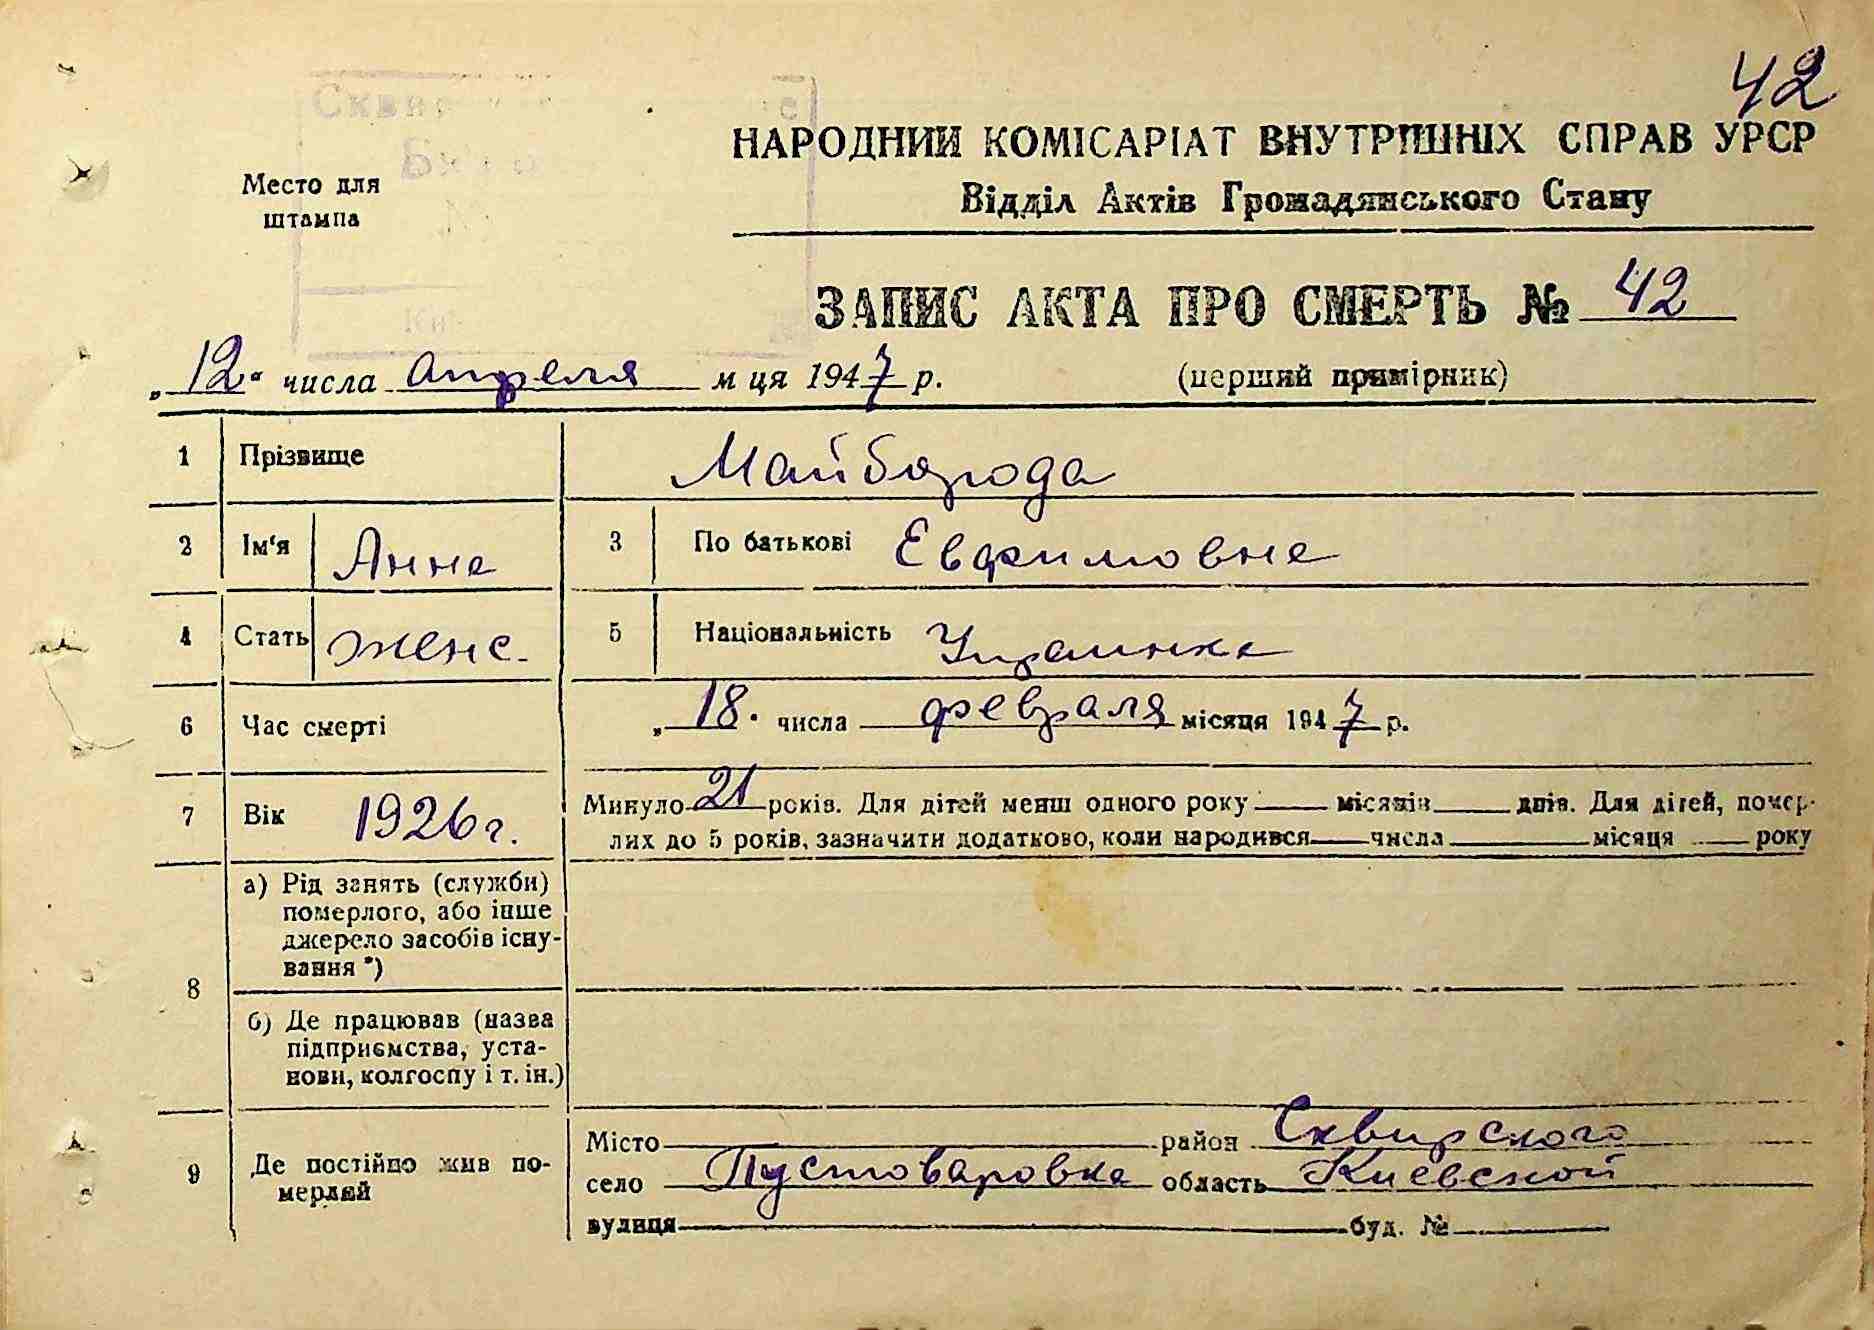 42
НАРОДНИЙ КОМІСАРІАТ ВНУТРІШНІХ СПРАВ УРСР
Відділ Актів Громадянського Стану
Место для
штампа
ЗАПИС АКТА ПРО СМЕРТЬ № 42
„12“ числа апреля м ця 1947 р. (перший примірник)
1 Прізвище Майборода
2 Ім‘я Анна 3 По батькові Евфимовна
4 Стать женс. 5 Національність Украинка
6 Час смерті „18“ числа февраля місяця 1947 р.
7 Вік 1926 г. Минуло 21 років. Для дітей менш одного року місяців днів. Для дітей, помер-
лих до 5 років, зазначити додатково, коли народився числа місяця року
8 а) Рід занять (служби)
померлого, або інше
джерело засобів існу-
вання *)
б) Де працював (назва
підприємства, уста-
нови, колгоспу і т. ін.)
9 Де постійно жив по-
мерлий
Місто район Сквирского
село Пустоваровка область Киевской
вулиця буд. №